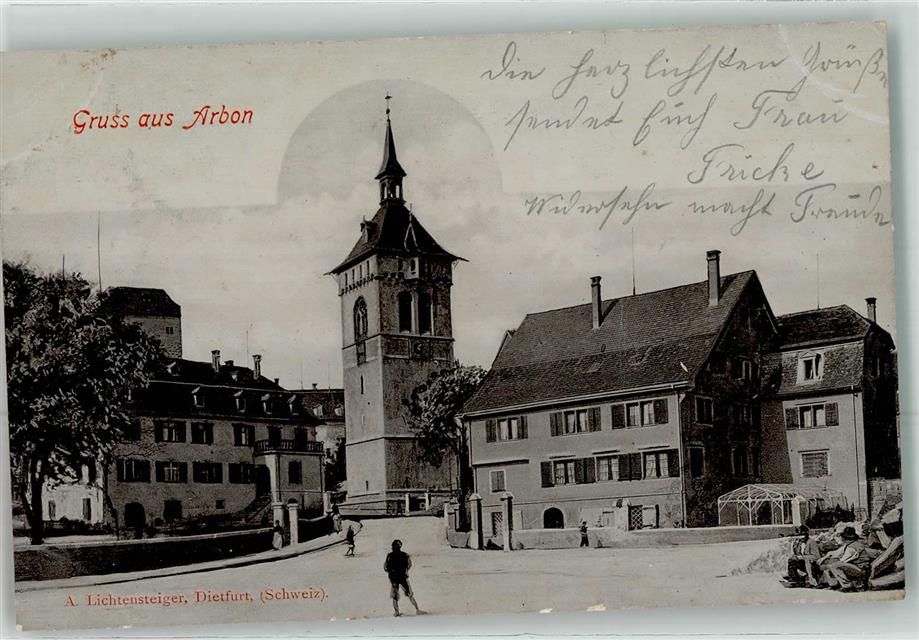 Gruss aus Arbon
Die herzlichsten Grüße
sendet Euch Frau
Fricke
Widersehn macht Freude
A. Lichtensteiger, Dietfurt, (Schweiz).